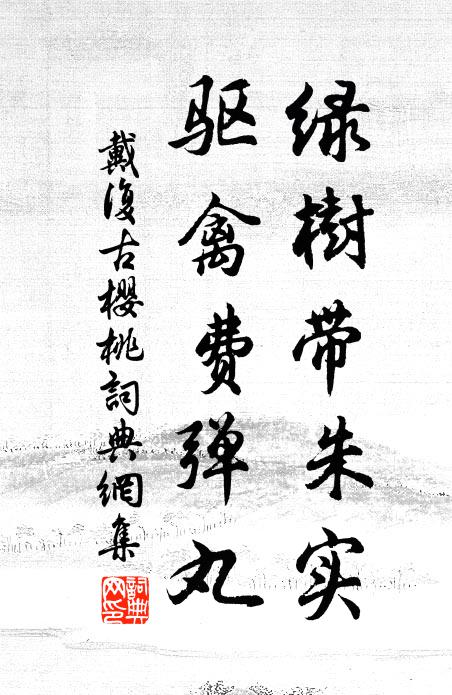 绿樹带朱实
驱禽费弹丸
戴復古櫻桃詞典網集
詞典
网印